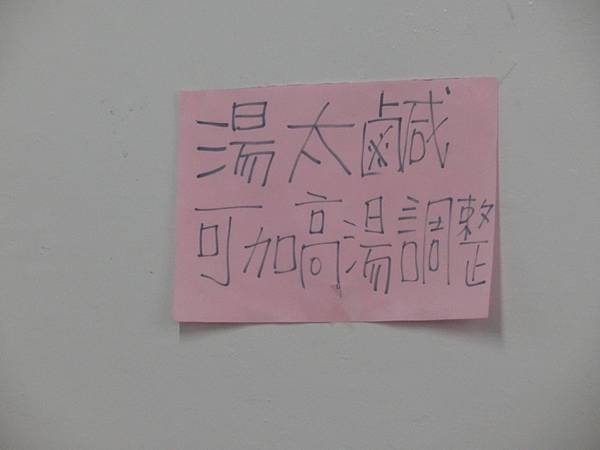 湯太鹹
可加高湯調整